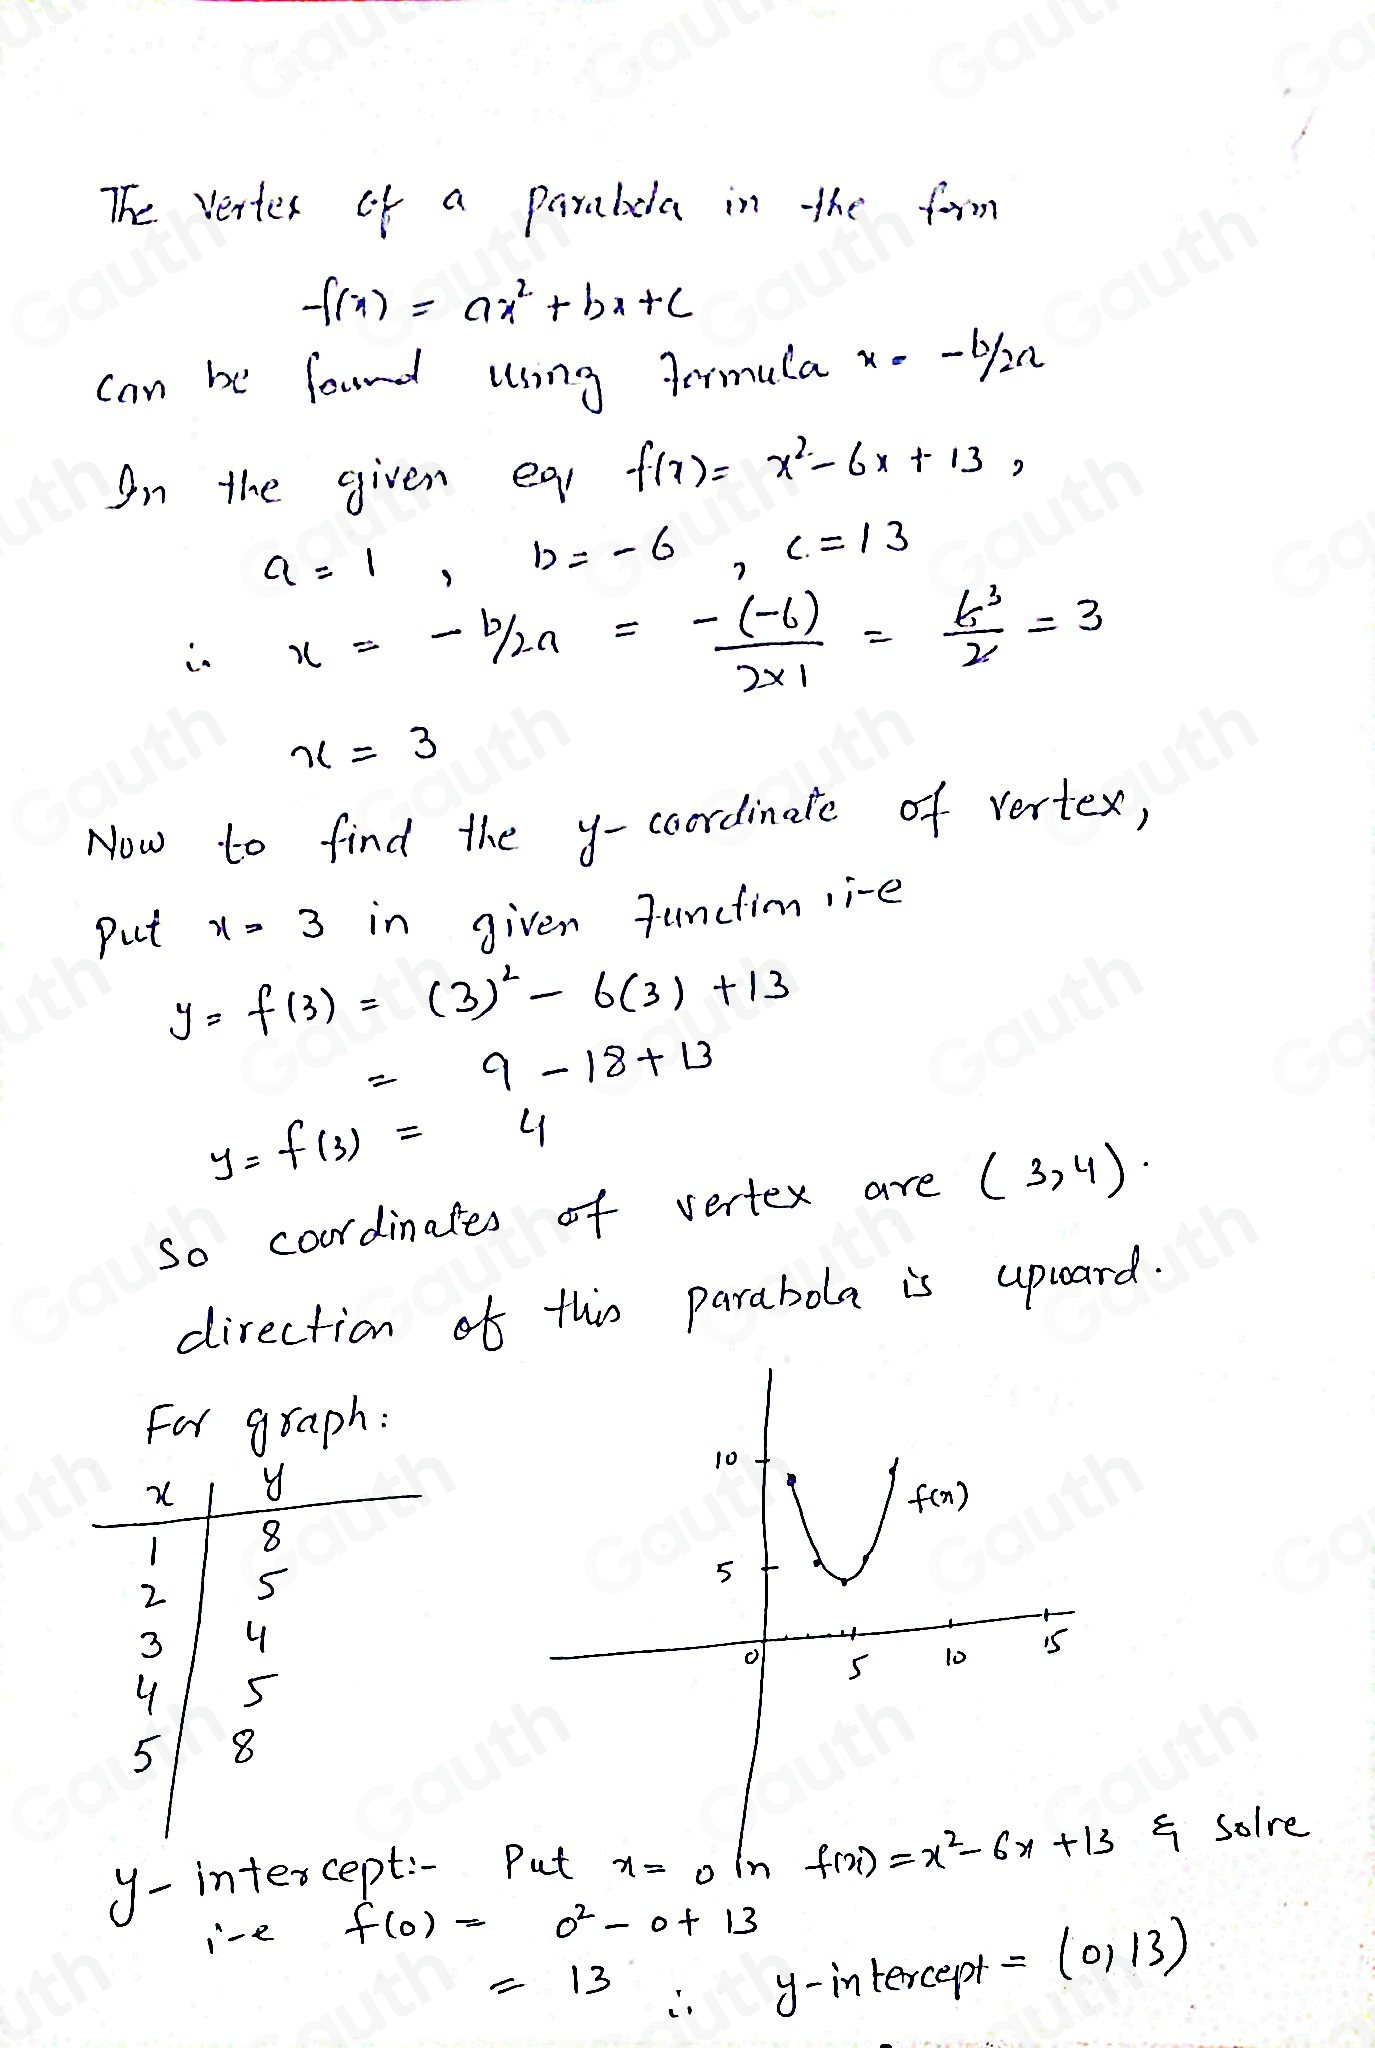 The vertex of a parabola in the form
f(x) = ax² + bx + c
can be found using formula x = -b/2a
In the given eq f(x) = x² - 6x + 13 ,
a = 1 , b = -6 , c = 13
∴ x = -b/2a = -(-6)/2×1 = 6³/2 = 3
x = 3
Now to find the y-coordinate of vertex,
Put x = 3 in given function i-e
y = f(3) = (3)² - 6(3) + 13
= 9 - 18 + 13
y = f(3) = 4
So coordinates of vertex are (3,4).
direction of this parabola is upward.
For graph:
x y
1 8
2 5
3 4
4 5
5 8
10
f(x)
5
0 5 10 15
y-intercept:- Put x = 0 in f(x) = x² - 6x + 13 & solve
i-e f(0) = 0² - 0 + 13
= 13 ∴ y-intercept = (0,13)
Gauth